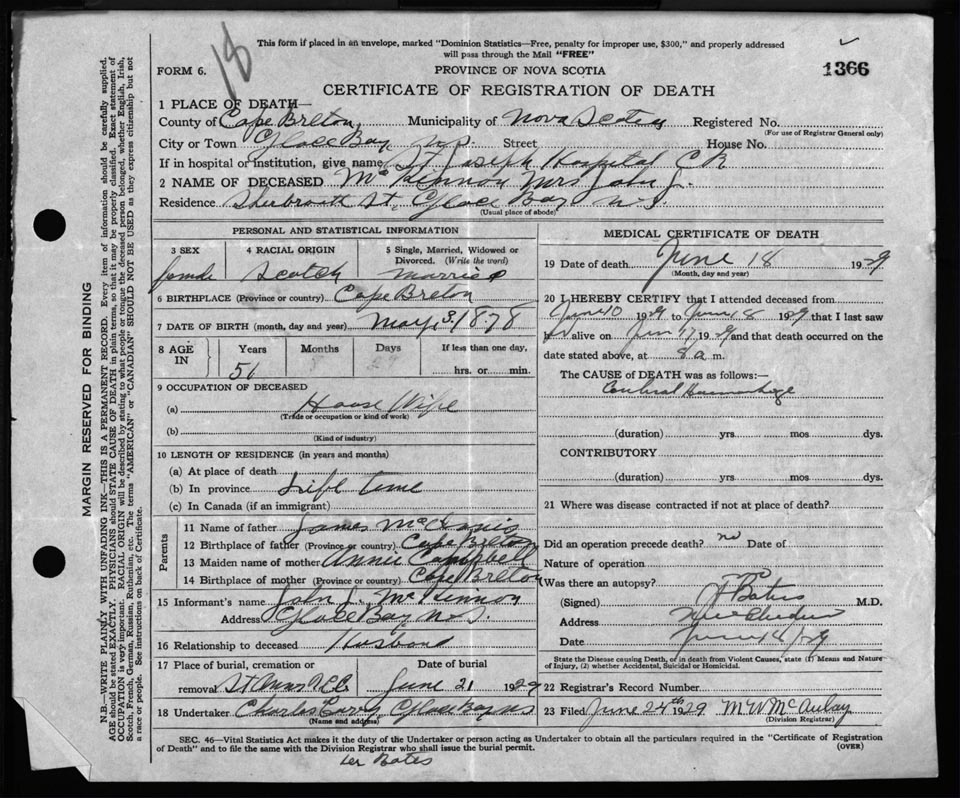 18
This form if placed in an envelope, marked "Dominion Statistics—Free, penalty for improper use, $300," and properly addressed
will pass through the Mail "FREE"
FORM 6.
PROVINCE OF NOVA SCOTIA
1366
CERTIFICATE OF REGISTRATION OF DEATH
MARGIN RESERVED FOR BINDING
N.B.—WRITE PLAINLY WITH UNFADING INK—THIS IS A PERMANENT RECORD. Every item of information should be carefully supplied.
AGE should be stated EXACTLY. PHYSICIANS should STATE CAUSE OF DEATH in plain terms, so that it may be properly classified. Exact statement of
OCCUPATION is very important. RACIAL ORIGIN will be described by stating to what people or tongue the deceased person belonged, whether English, Irish,
Scotch, French, German, Russian, Ruthenian, etc. The terms "AMERICAN" or "CANADIAN" SHOULD NOT BE USED as they express citizenship but not
a race or people. See instructions on back of Certificate.
1 PLACE OF DEATH—
County of Cape Breton Municipality of Nova Scotia Registered No.
(For use of Registrar General only)
City or Town Glace Bay N.S. Street House No.
If in hospital or institution, give name St Joseph Hospital C B
2 NAME OF DECEASED McKinnon Mrs John J.
Residence Sherbrooth St. Glace Bay N.S.
(Usual place of abode)
PERSONAL AND STATISTICAL INFORMATION
3 SEX 4 RACIAL ORIGIN 5 Single, Married, Widowed or
Divorced. (Write the word)
female Scotch married
6 BIRTHPLACE (Province or country) Cape Breton
7 DATE OF BIRTH (month, day and year) May 3 1878
8 AGE IN Years Months Days If less than one day,
51 hrs. or min.
9 OCCUPATION OF DECEASED
(a) House Wife
(Trade or occupation or kind of work)
(b)
(Kind of industry)
10 LENGTH OF RESIDENCE (in years and months)
(a) At place of death
(b) In province Life time
(c) In Canada (if an immigrant)
Parents
11 Name of father James McInnis
12 Birthplace of father (Province or country) Cape Breton
13 Maiden name of mother Annie Campbell
14 Birthplace of mother (Province or country) Cape Breton
15 Informant's name John J. McKinnon
Address Glace Bay N.S.
16 Relationship to deceased Husband
17 Place of burial, cremation or Date of burial
removal St Anns June 21 1929
18 Undertaker Charles Curry Glace Bay NS
(Name and address)
MEDICAL CERTIFICATE OF DEATH
19 Date of death June 18 1929
(Month, day and year)
20 I HEREBY CERTIFY that I attended deceased from
June 10 1929 to June 18 1929 that I last saw
h alive on Jun 17 1929 and that death occurred on the
date stated above, at 8 a m.
The CAUSE of DEATH was as follows:—
Cerebral Haemorrhage
(duration) yrs mos dys.
CONTRIBUTORY
(duration) yrs mos dys.
21 Where was disease contracted if not at place of death?
Did an operation precede death? no Date of
Nature of operation
Was there an autopsy? no
(Signed) Bates M.D.
Address New Aberdeen
Date June 18/29
State the Disease causing Death, or in death from Violent Causes, state (1) Means and Nature
of Injury, (2) whether Accidental, Suicidal or Homicidal.
22 Registrar's Record Number
23 Filed June 24th 1929 M W McAulay
(Division Registrar)
SEC. 46—Vital Statistics Act makes it the duty of the Undertaker or person acting as Undertaker to obtain all the particulars required in the "Certificate of Registration
of Death" and to file the same with the Division Registrar who shall issue the burial permit. (OVER)
Bates